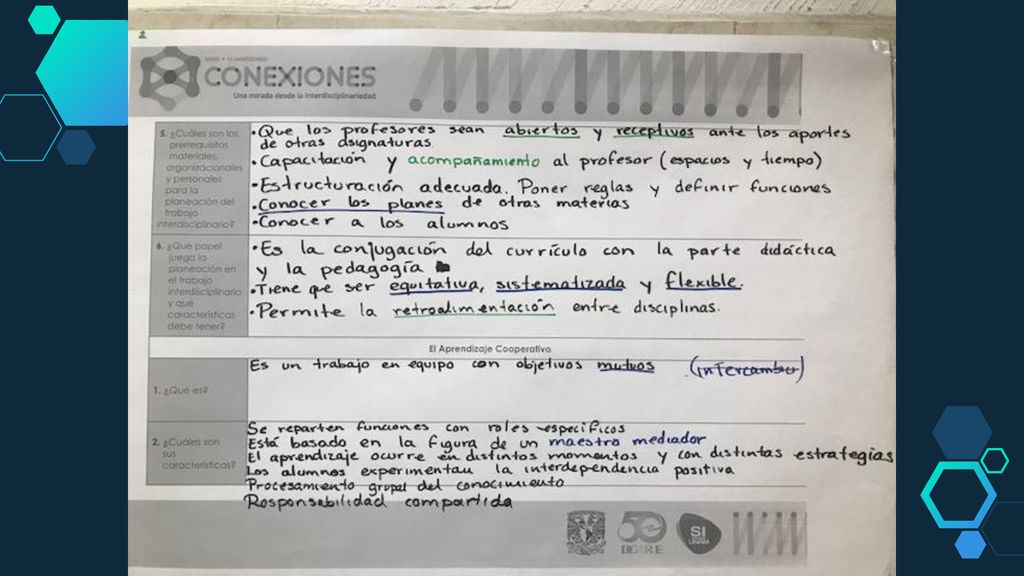 2
CONEXIONES
Una mirada desde la interdisciplinariedad
5. ¿Cuáles son los
prerrequisitos
materiales,
organizacionales
y personales
para la
planeación del
trabajo
interdisciplinario?
•Que los profesores sean abiertos y receptivos ante los aportes
de otras asignaturas.
•Capacitación y acompañamiento al profesor (espacios y tiempo)
•Estructuración adecuada. Poner reglas y definir funciones
•Conocer los planes de otras materias
•Conocer a los alumnos
6. ¿Qué papel
juega la
planeación en
el trabajo
interdisciplinario
y qué
características
debe tener?
•Es la conjugación del currículo con la parte didáctica
y la pedagogía
•Tiene que ser equitativa, sistematizada y flexible.
•Permite la retroalimentación entre disciplinas.
El Aprendizaje Cooperativo
1. ¿Qué es?
Es un trabajo en equipo con objetivos mutuos (intercambio)
2. ¿Cuáles son
sus
características?
Se reparten funciones con roles especificos
Está basado en la figura de un maestro mediador
El aprendizaje ocurre en distintos momentos y con distintas estrategias
Los alumnos experimentan la interdependencia positiva
Procesamiento grupal del conocimiento
Responsabilidad compartida
50
DGIRE
SI
UNAM